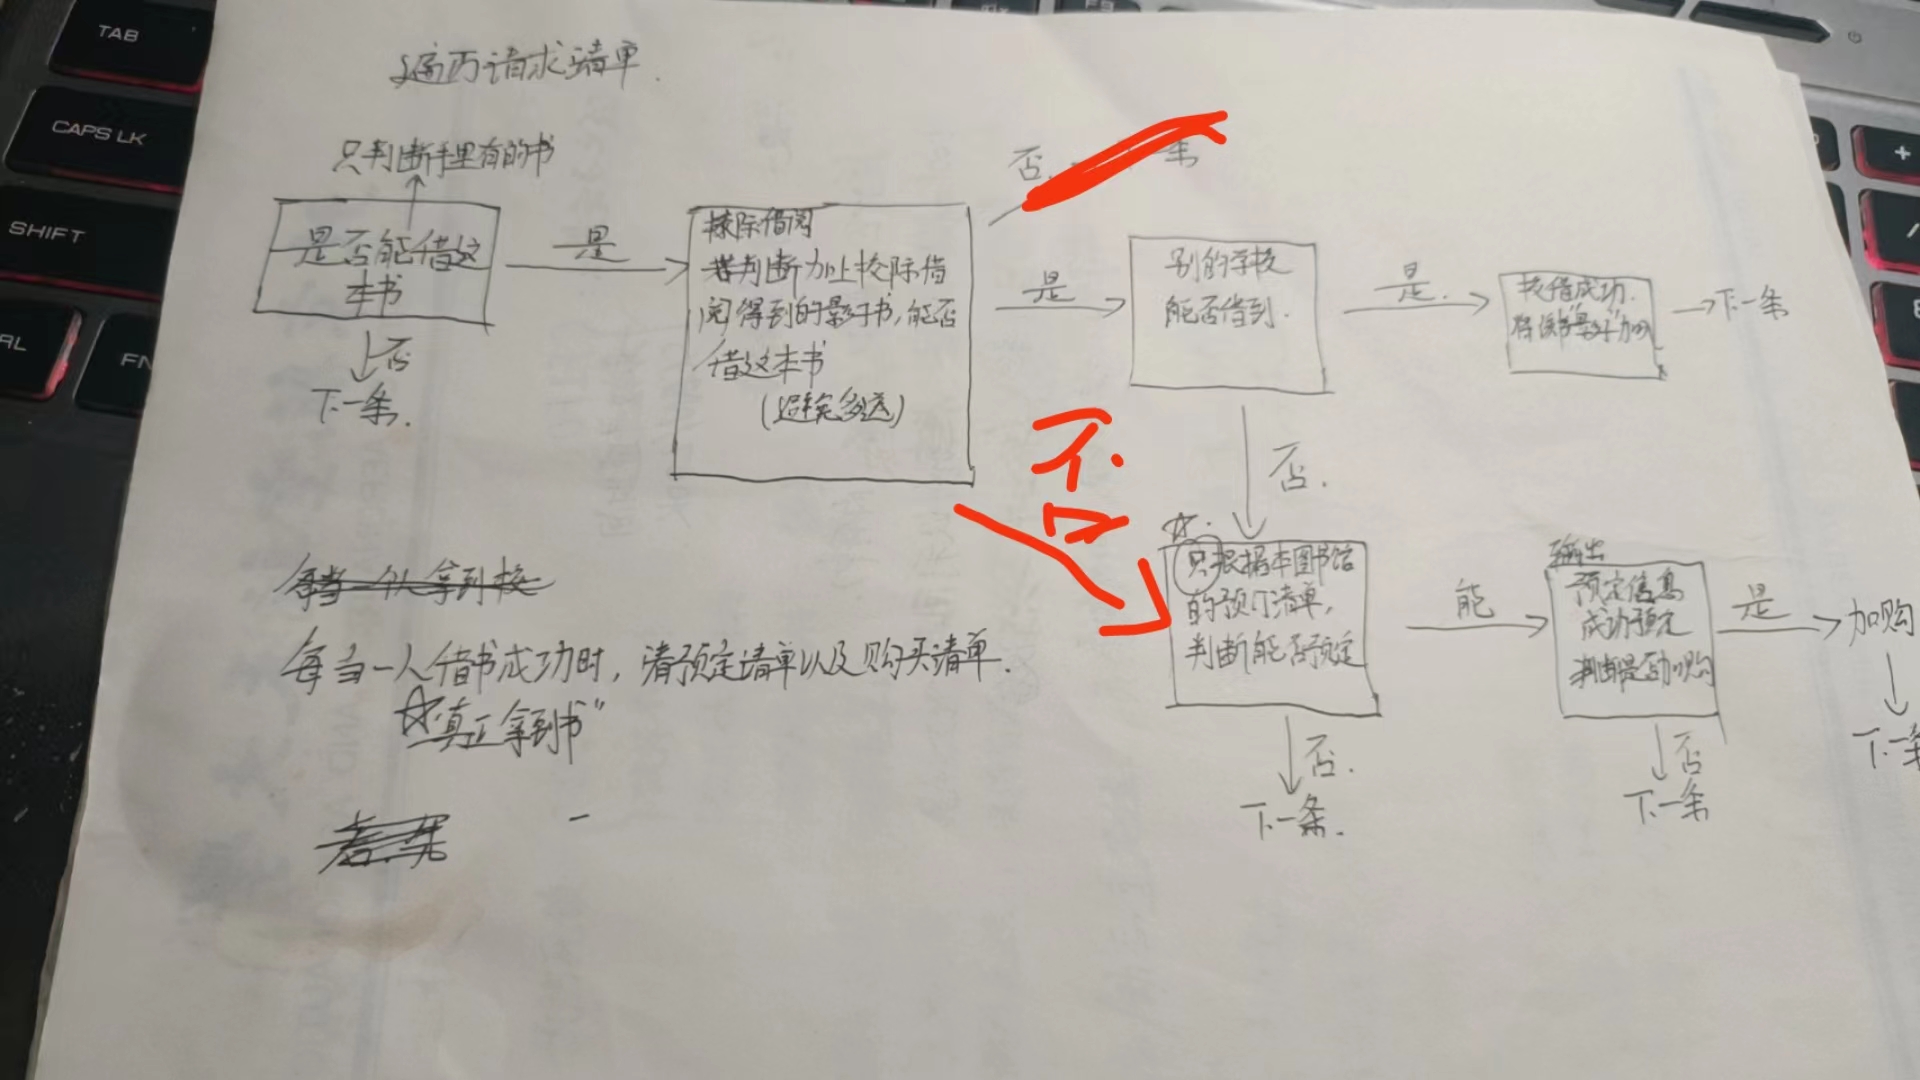 TAB
CAPS LK
SHIFT
FN
遍历请求清单.
只判断手里有的书
是否能借这
本书
否
下一条.
是
校际借阅
若判断加上校际借
阅得到的影子书,能否
借这本书
(避免多送)
否.
条
是
别的学校
能否借到.
是.
校借成功.
将该书"影子"加
下一条
否.
否
☆.
只根据本图书馆
的预订清单,
判断能否预定
否.
下一条.
能
输出
预定信息
成功预定
判断是否加购
否
下一条
是
加购
下一条
每当一人拿到校
每当一人借书成功时,清预定清单以及购买清单.
☆"真正拿到书"